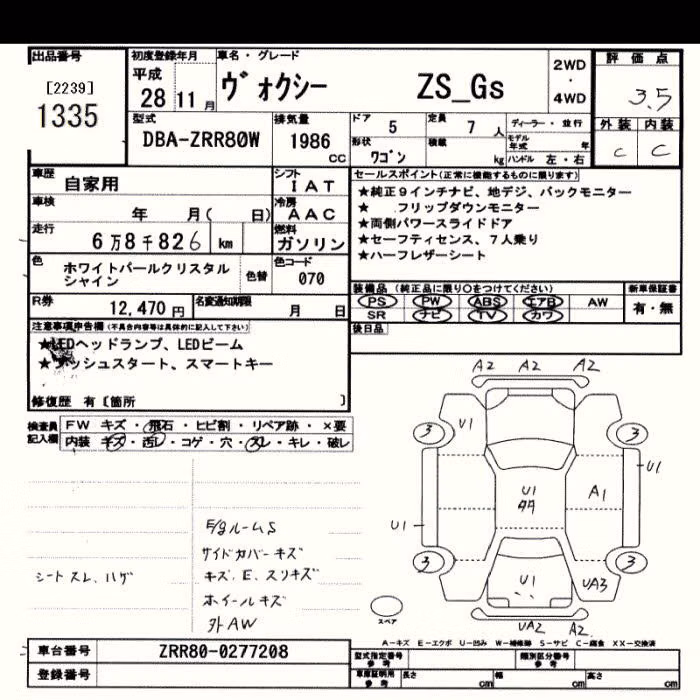 出品番号
[2239]
1335
初度登録年月
平成
28 11 月
車名・グレード
ヴォクシー ZS_Gs
2WD
・
4WD
評価点
3.5
型式
DBA-ZRR80W
排気量
1986
CC
ドア 5
定員 7 人
ディーラー・並行
モデル年式 年
形状 ワゴン
積載 kg
ハンドル 左・右
外装 内装
C C
車歴 自家用
シフト IAT
車検 年 月( 日)
冷房 AAC
走行 6万8千826 km
燃料 ガソリン
色 ホワイトパールクリスタル
シャイン
色替
色コード 070
R券 12,470 円
名変通知期限 月 日
セールスポイント(正常に機能するものに限ります)
★純正9インチナビ、地デジ、バックモニター
★ .フリップダウンモニター
★両側パワースライドドア
★セーフティセンス、7人乗り
★ハーフレザーシート
装備品 (純正品に限り〇をつけてください)
新車保証書
PS PW ABS エアB AW
SR ナビ TV カワ
有・無
後日品
注意事項申告欄 (不具合内容等は具体的に記入して下さい)
★LEDヘッドランプ、LEDビーム
★プッシュスタート、スマートキー
修復歴 有〔箇所 〕
検査員記入欄
FW キズ・飛石・ヒビ割・リペア跡・×要
内装 キズ・汚レ・コゲ・穴・スレ・キレ・破レ
シートスレ、ハゲ
E/gルームS
サイドカバーキズ
キズ、E、スリキズ
ホイールキズ
外AW
A2 A2 A2
3 U1 3
U1
U1 A1
U1
3 U1 UA3 3
UA2 A2
スペア
A-キズ E-エクボ U-凹み W-補修跡 S-サビ C-腐食 XX-交換済
車台番号 ZRR80-0277208
登録番号
型式指定番号
参考
類別区分番号
参考
車庫証明用
参考
長さ cm
幅 cm
高さ cm